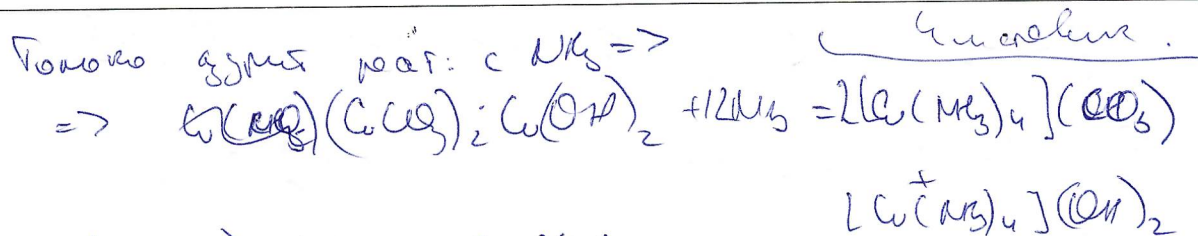 Чистовик.
Только азурит реаг. с NH3 =>
=> (CuCO3)2·Cu(OH)2 +12NH3 = 2[Cu(NH3)4](CO3)
+
[Cu(NH3)4](OH)2